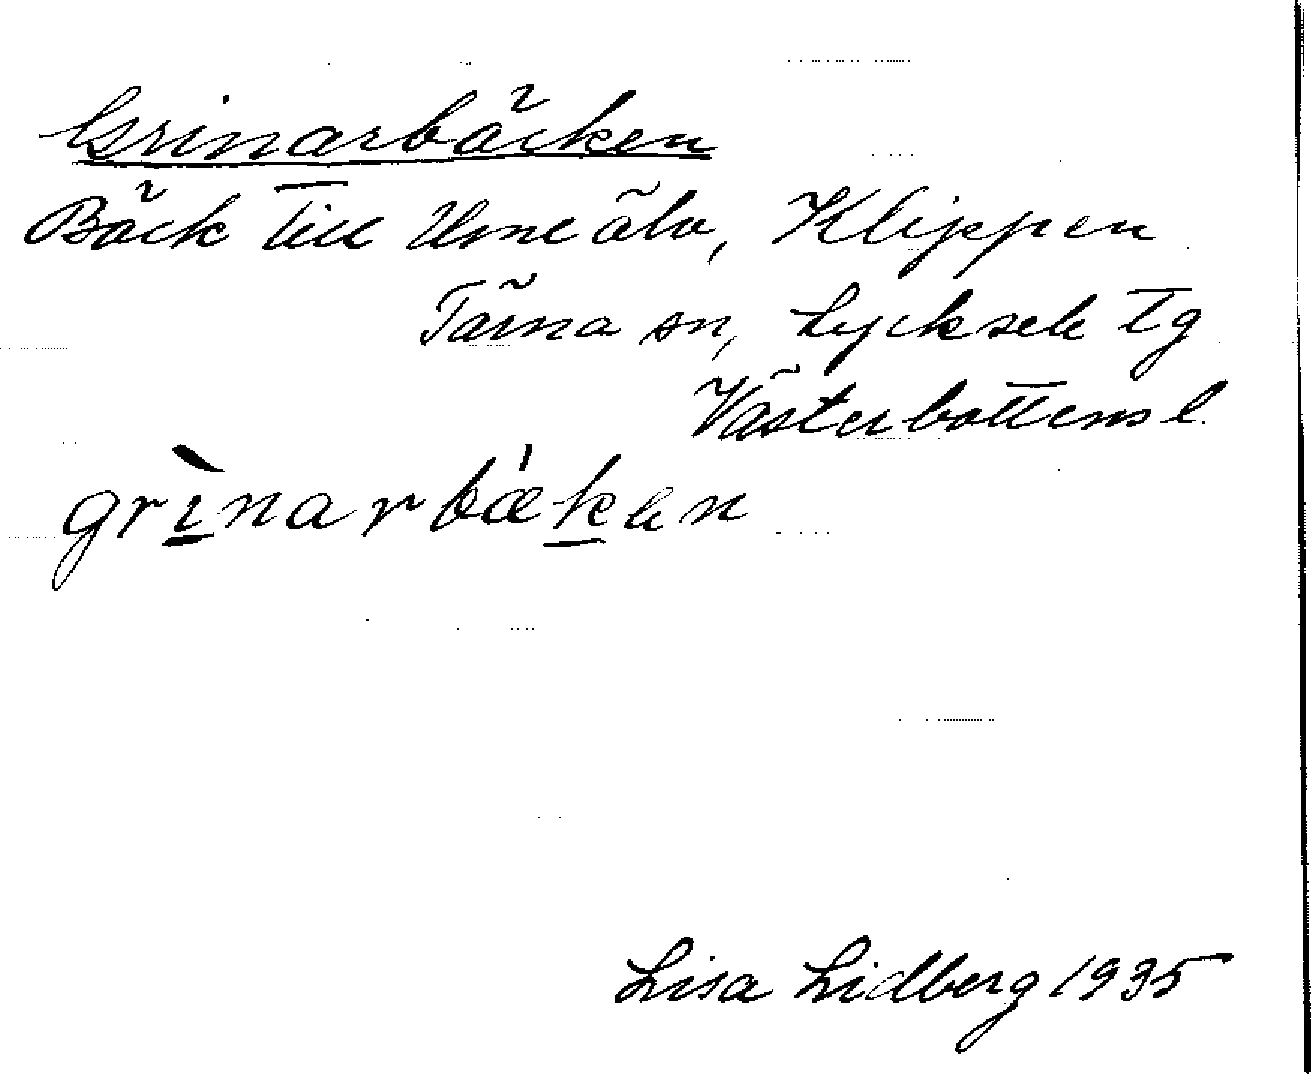 Grinarbäcken
Bäck till Ume älv, Klippen
Tärna sn, Lycksele tg
Västerbottens l.
grı̲̀narbǽk̲en
Lisa Lidberg 1935